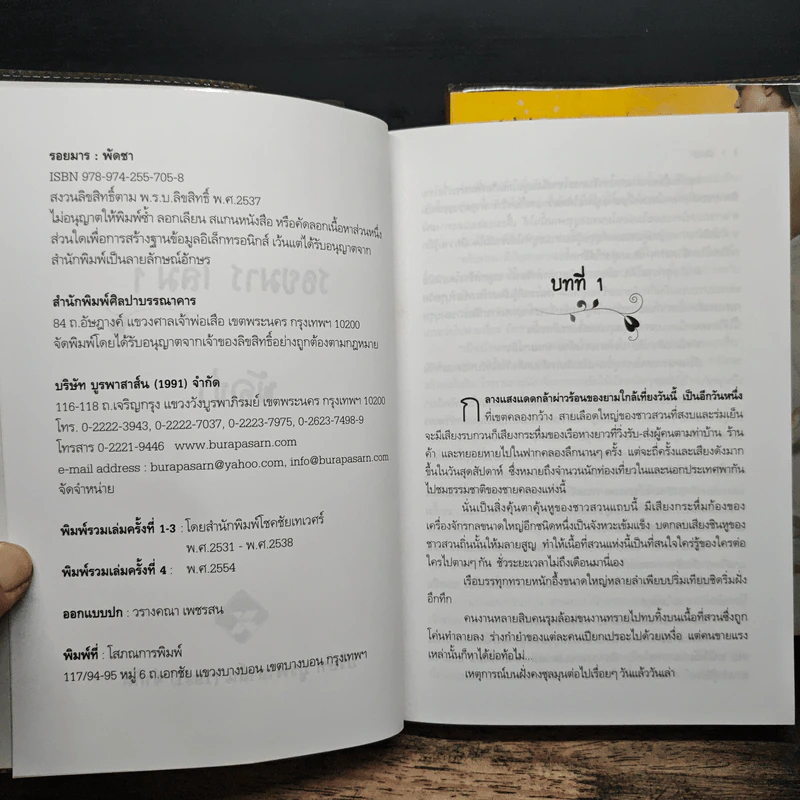 รอยมาร : พัดชา
ISBN 978-974-255-705-8
สงวนลิขสิทธิ์ตาม พ.ร.บ.ลิขสิทธิ์ พ.ศ.2537
ไม่อนุญาตให้พิมพ์ซ้ำ ลอกเลียน สแกนหนังสือ หรือคัดลอกเนื้อหาส่วนหนึ่ง
ส่วนใดเพื่อการสร้างฐานข้อมูลอิเล็กทรอนิกส์ เว้นแต่ได้รับอนุญาตจาก
สำนักพิมพ์เป็นลายลักษณ์อักษร
สำนักพิมพ์ศิลปาบรรณาคาร
84 ถ.อัษฎางค์ แขวงศาลเจ้าพ่อเสือ เขตพระนคร กรุงเทพฯ 10200
จัดพิมพ์โดยได้รับอนุญาตจากเจ้าของลิขสิทธิ์อย่างถูกต้องตามกฎหมาย
บริษัท บูรพาสาส์น (1991) จำกัด
116-118 ถ.เจริญกรุง แขวงวังบูรพาภิรมย์ เขตพระนคร กรุงเทพฯ 10200
โทร. 0-2222-3943, 0-2222-7037, 0-2223-7975, 0-2623-7498-9
โทรสาร 0-2221-9446 www.burapasarn.com
e-mail address : burapasarn@yahoo.com, info@burapasarn.com
จัดจำหน่าย
พิมพ์รวมเล่มครั้งที่ 1-3 : โดยสำนักพิมพ์โชคชัยเทเวศร์
พ.ศ.2531 - พ.ศ.2538
พิมพ์รวมเล่มครั้งที่ 4 : พ.ศ.2554
ออกแบบปก : วรางคณา เพชรสน
พิมพ์ที่ : โสภณการพิมพ์
117/94-95 หมู่ 6 ถ.เอกชัย แขวงบางบอน เขตบางบอน กรุงเทพฯ
บทที่ 1
กลางแสงแดดกล้าผ่าวร้อนของยามใกล้เที่ยงวันนี้ เป็นอีกวันหนึ่ง
ที่เขตคลองกว้าง สายเลือดใหญ่ของชาวสวนที่สงบและร่มเย็น
จะมีเสียงรบกวนก็เสียงกระหึ่มของเรือหางยาวที่วิ่งรับ-ส่งผู้คนตามท่าบ้าน ร้าน
ค้า และทยอยหายไปในฟากคลองลึกนานๆ ครั้ง แต่จะถี่ครั้งและเสียงดังมาก
ขึ้นในวันสุดสัปดาห์ ซึ่งหมายถึงจำนวนนักท่องเที่ยวในและนอกประเทศพากัน
ไปชมธรรมชาติของชายคลองแห่งนี้
นั่นเป็นสิ่งคุ้นตาคุ้นหูของชาวสวนแถบนี้ มีเสียงกระหึ่มก้องของ
เครื่องจักรกลขนาดใหญ่อีกชนิดหนึ่งเป็นจังหวะเข้มแข็ง บดกลบเสียงชินหูของ
ชาวสวนถิ่นนั้นให้มลายสูญ ทำให้เนื้อที่สวนแห่งนี้เป็นที่สนใจใคร่รู้ของใครต่อ
ใครไปตามๆ กัน ชั่วระยะเวลาไม่ถึงเดือนมานี่เอง
เรือบรรทุกทรายหนักอึ้งขนาดใหญ่หลายลำเพียบปริ่มเทียบชิดริมฝั่ง
อีกทึก
คนงานหลายสิบคนรุมล้อมขนงานทรายไปทบทิ้งบนเนื้อที่สวนซึ่งถูก
โค่นทำลายลง ร่างกำยำของแต่ละคนเปียกเปรอะไปด้วยเหงื่อ แต่คนขายแรง
เหล่านั้นก็หาได้ย่อท้อไม่...
เหตุการณ์บนฝั่งคงชุลมุนต่อไปเรื่อยๆ วันแล้ววันเล่า